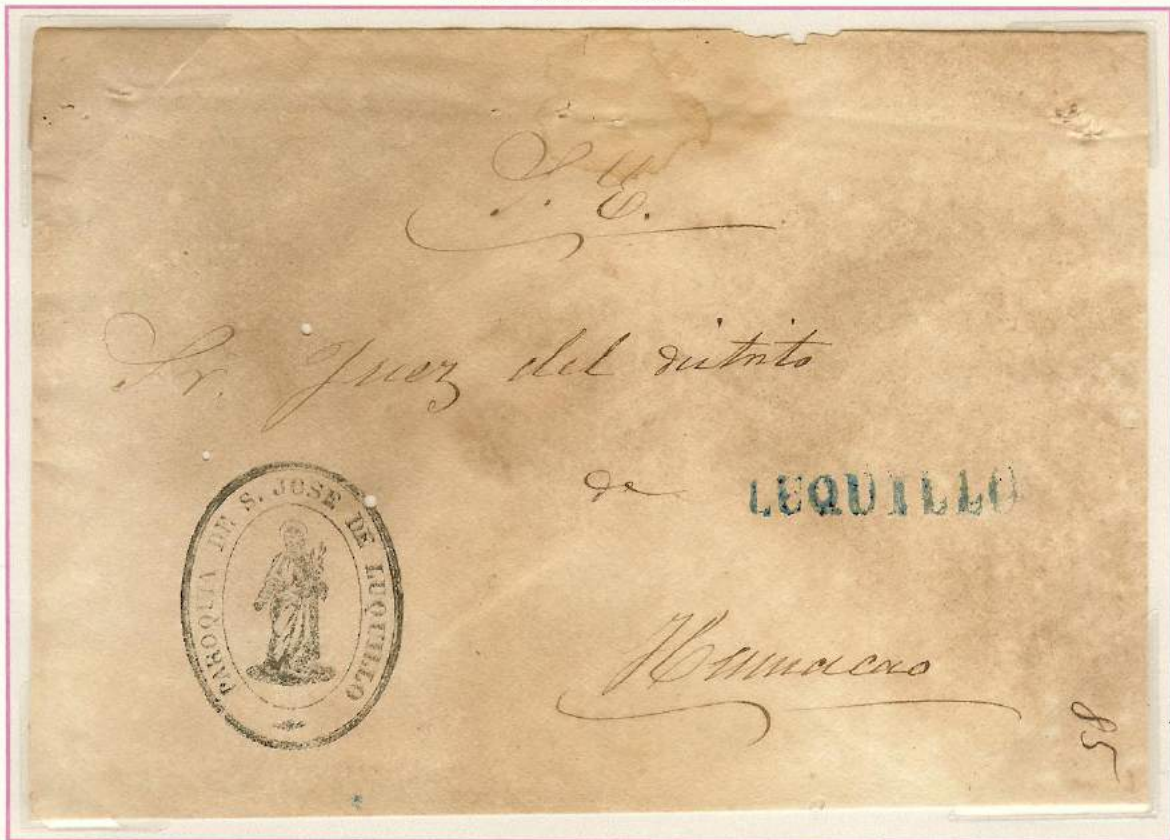 S. N.
Sr. Juez del distrito
de LUQUILLO
Humacao
PAROQUIA DE S. JOSE DE LUQUILLO
85